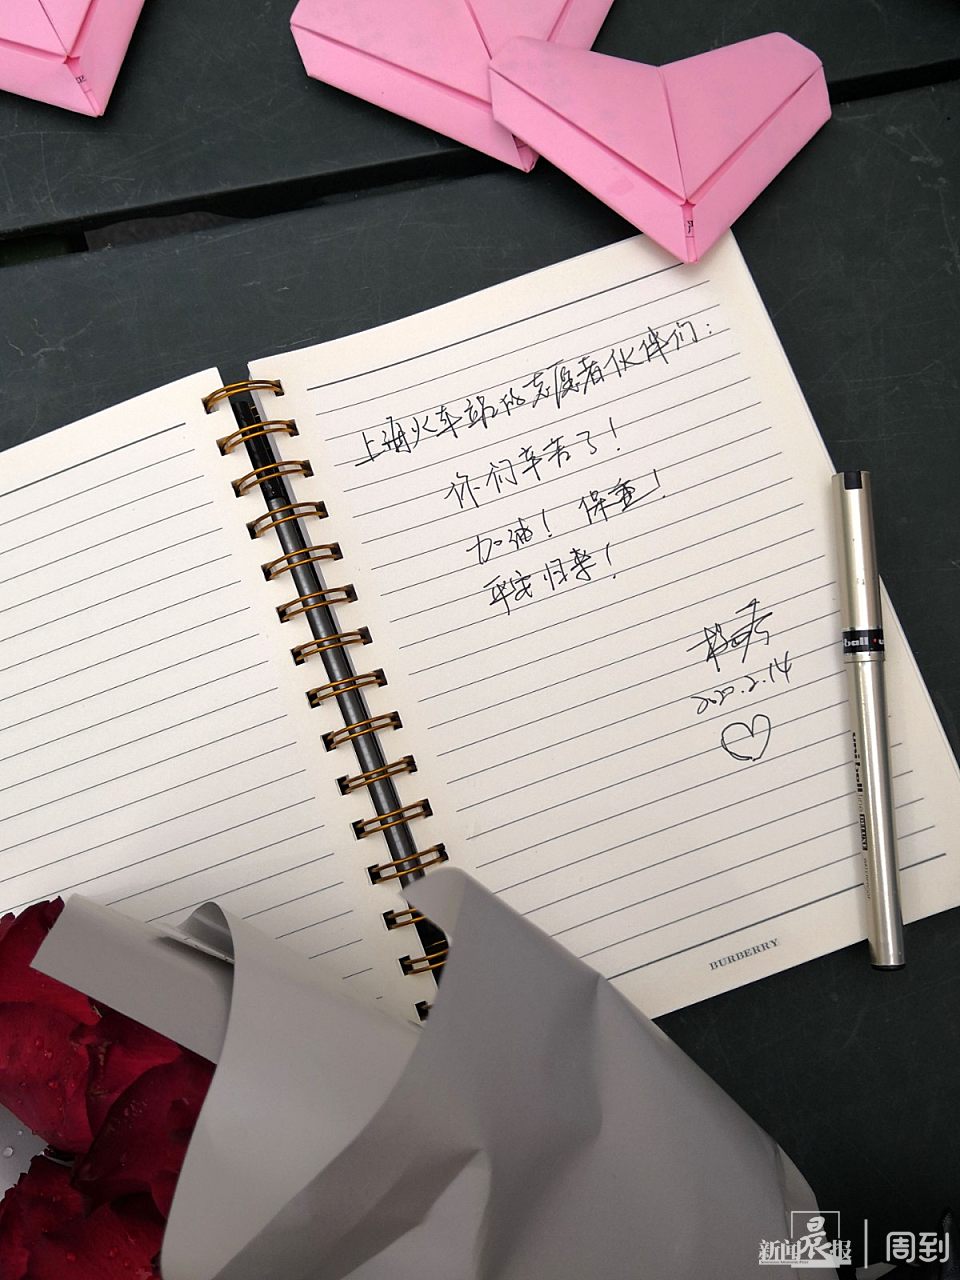 上海火车站的志愿者伙伴们：
你们辛苦了！
加油！保重！
平安归来！
2020.2.14
BURBERRY
新闻晨报 周到